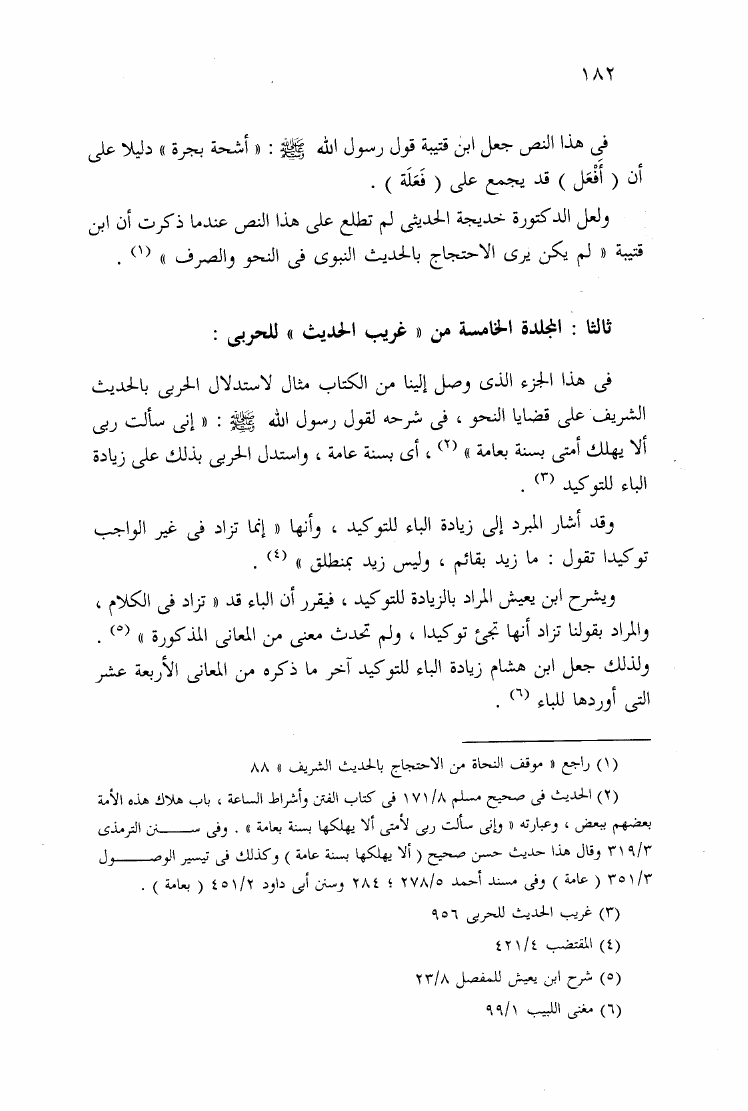 ١٨٢
فى هذا النص جعل ابن قتيبة قول رسول الله ﷺ : « أشحة بجرة » دليلا على
أن ( أَفْعَل ) قد يجمع على ( فَعَلَة ) .
ولعل الدكتورة خديجة الحديثى لم تطلع على هذا النص عندما ذكرت أن ابن
قتيبة « لم يكن يرى الاحتجاج بالحديث النبوى فى النحو والصرف » (١) .
ثالثا : المجلدة الخامسة من « غريب الحديث » للحربى :
فى هذا الجزء الذى وصل إلينا من الكتاب مثال لاستدلال الحربى بالحديث
الشريف على قضايا النحو ، فى شرحه لقول رسول الله ﷺ : « إنى سألت ربى
ألا يهلك أمتى بسنة بعامة » (٢) ، أى بسنة عامة ، واستدل الحربى بذلك على زيادة
الباء للتوكيد (٣) .
وقد أشار المبرد إلى زيادة الباء للتوكيد ، وأنها « إنما تزاد فى غير الواجب
توكيدا تقول : ما زيد بقائم ، وليس زيد بمنطلق » (٤) .
ويشرح ابن يعيش المراد بالزيادة للتوكيد ، فيقرر أن الباء قد « تزاد فى الكلام ،
والمراد بقولنا تزاد أنها تجئ توكيدا ، ولم تحدث معنى من المعانى المذكورة » (٥) .
ولذلك جعل ابن هشام زيادة الباء للتوكيد آخر ما ذكره من المعانى الأربعة عشر
التى أوردها للباء (٦) .
(١) راجع « موقف النحاة من الاحتجاج بالحديث الشريف » ٨٨
(٢) الحديث فى صحيح مسلم ١٧١/٨ فى كتاب الفتن وأشراط الساعة ، باب هلاك هذه الأمة
بعضهم ببعض ، وعبارته « وإنى سألت ربى لأمتى ألا يهلكها بسنة بعامة » . وفى سـنن الترمذى
٣١٩/٣ وقال هذا حديث حسن صحيح ( ألا يهلكها بسنة عامة ) وكذلك فى تيسير الوصـول
٣٥١/٣ ( عامة ) وفى مسند أحمد ٢٧٨/٥ ؛ ٢٨٤ وسنن أبى داود ٤٥١/٢ ( بعامة ) .
(٣) غريب الحديث للحربى ٩٥٦
(٤) المقتضب ٤٢١/٤
(٥) شرح ابن يعيش للمفصل ٢٣/٨
(٦) مغنى اللبيب ٩٩/١